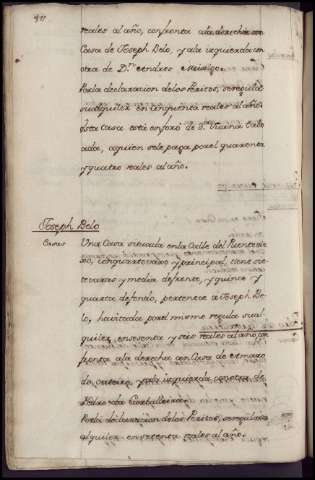 reales al año, confronta ala derecha con
Casa de Joseph Belo, y ala izquierda con
otra de Dn. Andres
Por la declaracion de los Peritos, se regula
su alquiler en cinquenta reales al año
esta Casa está en foro de Da.
a quien se le paga por el quarenta
y quatro reales al año.
Joseph Belo
Casas Una Casa situada en la Calle del Puente
con quarto vajo y principal, tiene siete
varas y media de frente, y quince y
quarta de fondo, pertenece a Joseph Be-
lo, havitada por el mismo regula su al-
quiler en sesenta y seis reales al año, con
fronta ala derecha con Casa de
y ala izquierda con otra de
Pedro da
Por la declaracion de los Peritos, se regula su
alquiler en setenta reales al año.